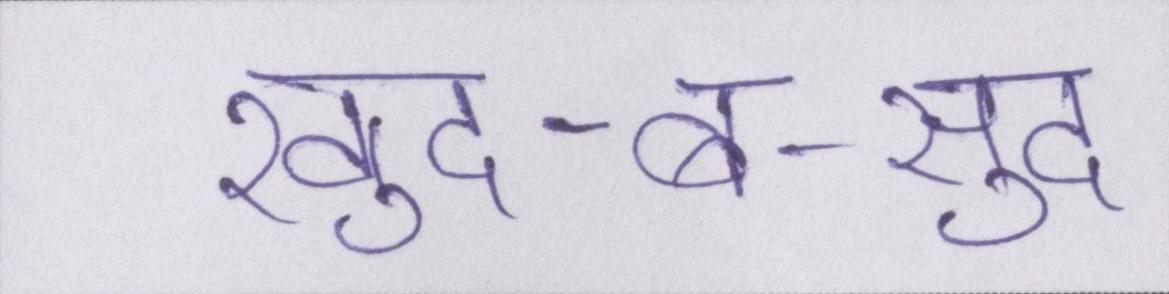 खुद-ब-सुद